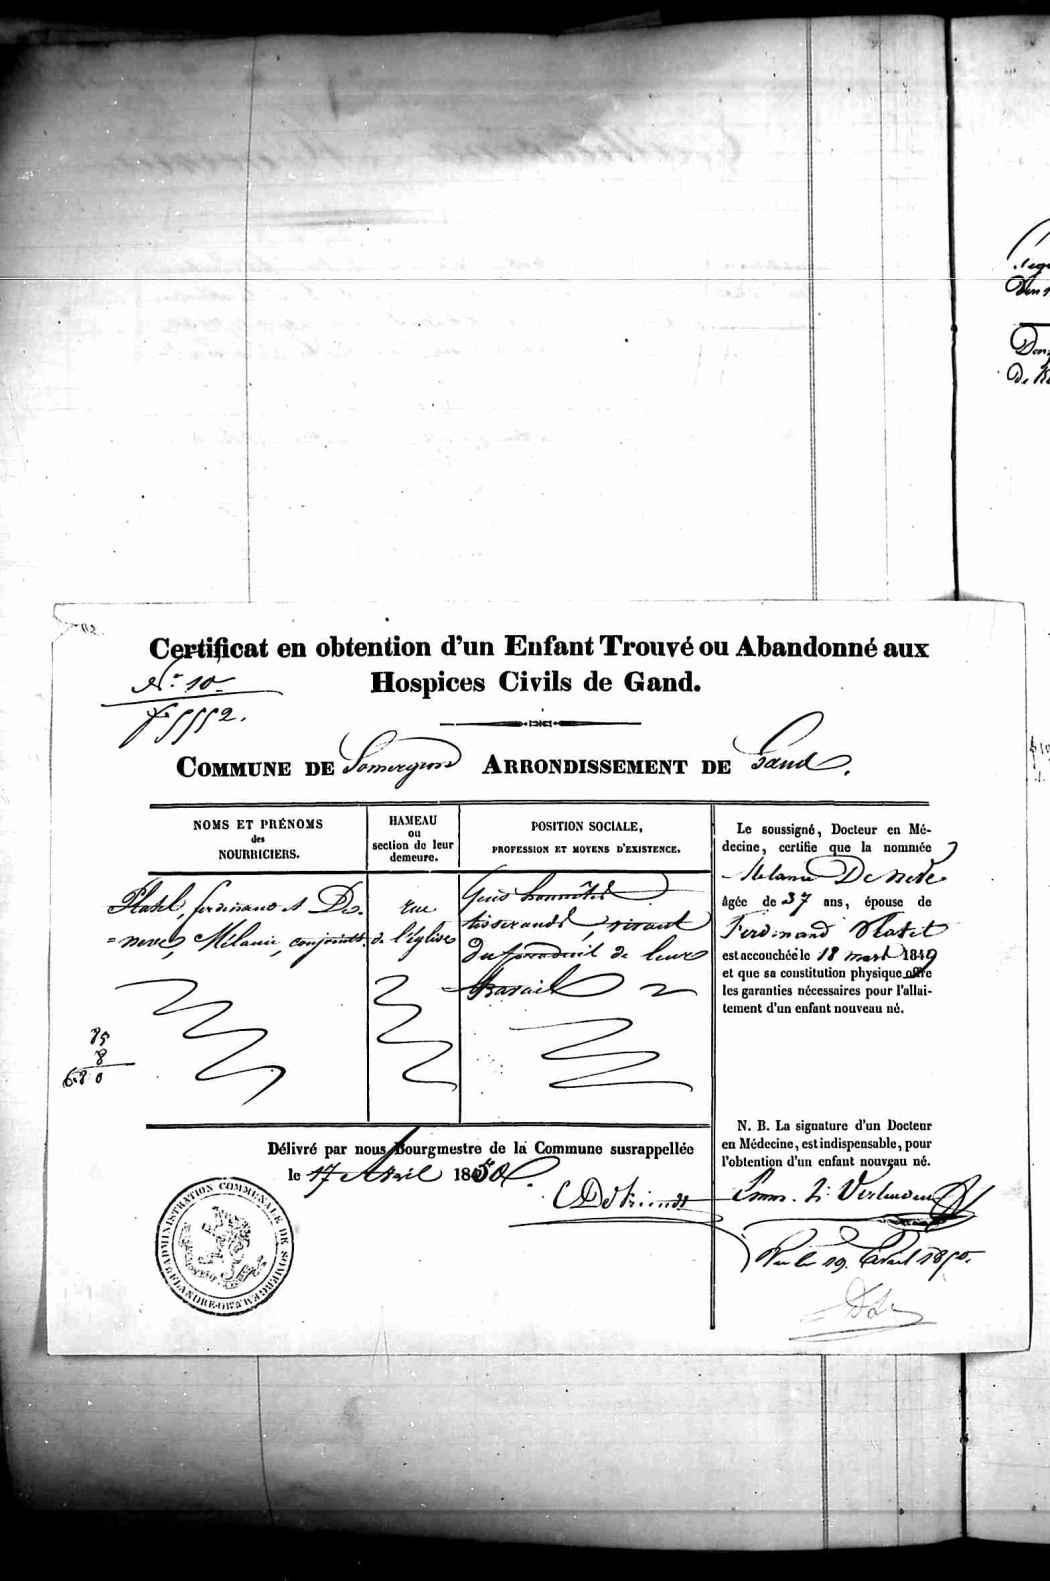 Certificat en obtention d'un Enfant Trouvé ou Abandonné aux
Hospices Civils de Gand.
N.º 10
f. 5552.
COMMUNE DE Somergem ARRONDISSEMENT DE Gand.
NOMS ET PRÉNOMS
des
NOURRICIERS.
HAMEAU
ou
section de leur
demeure.
POSITION SOCIALE,
PROFESSION ET MOYENS D'EXISTENCE.
Platel, ferdinand et De-
=neve, Mélanie, conjoints.
rue
de l'église
Gens honnêtes
tisserands, vivant
du produit de leur
travail
85
8
680
Le soussigné, Docteur en Mé-
decine, certifie que la nommée
Melanie De neve
âgée de 37 ans, épouse de
Ferdinand Platel
est accouchée le 18 mars 1849
et que sa constitution physique offre
les garanties nécessaires pour l'allai-
tement d'un enfant nouveau né.
N. B. La signature d'un Docteur
en Médecine, est indispensable, pour
l'obtention d'un enfant nouveau né.
Vu le 19 avril 1850.
Délivré par nous Bourgmestre de la Commune susrappellée
le 17 Avril 1850
ADMINISTRATION COMMUNALE DE SOMERGEM FLANDRE-OR.